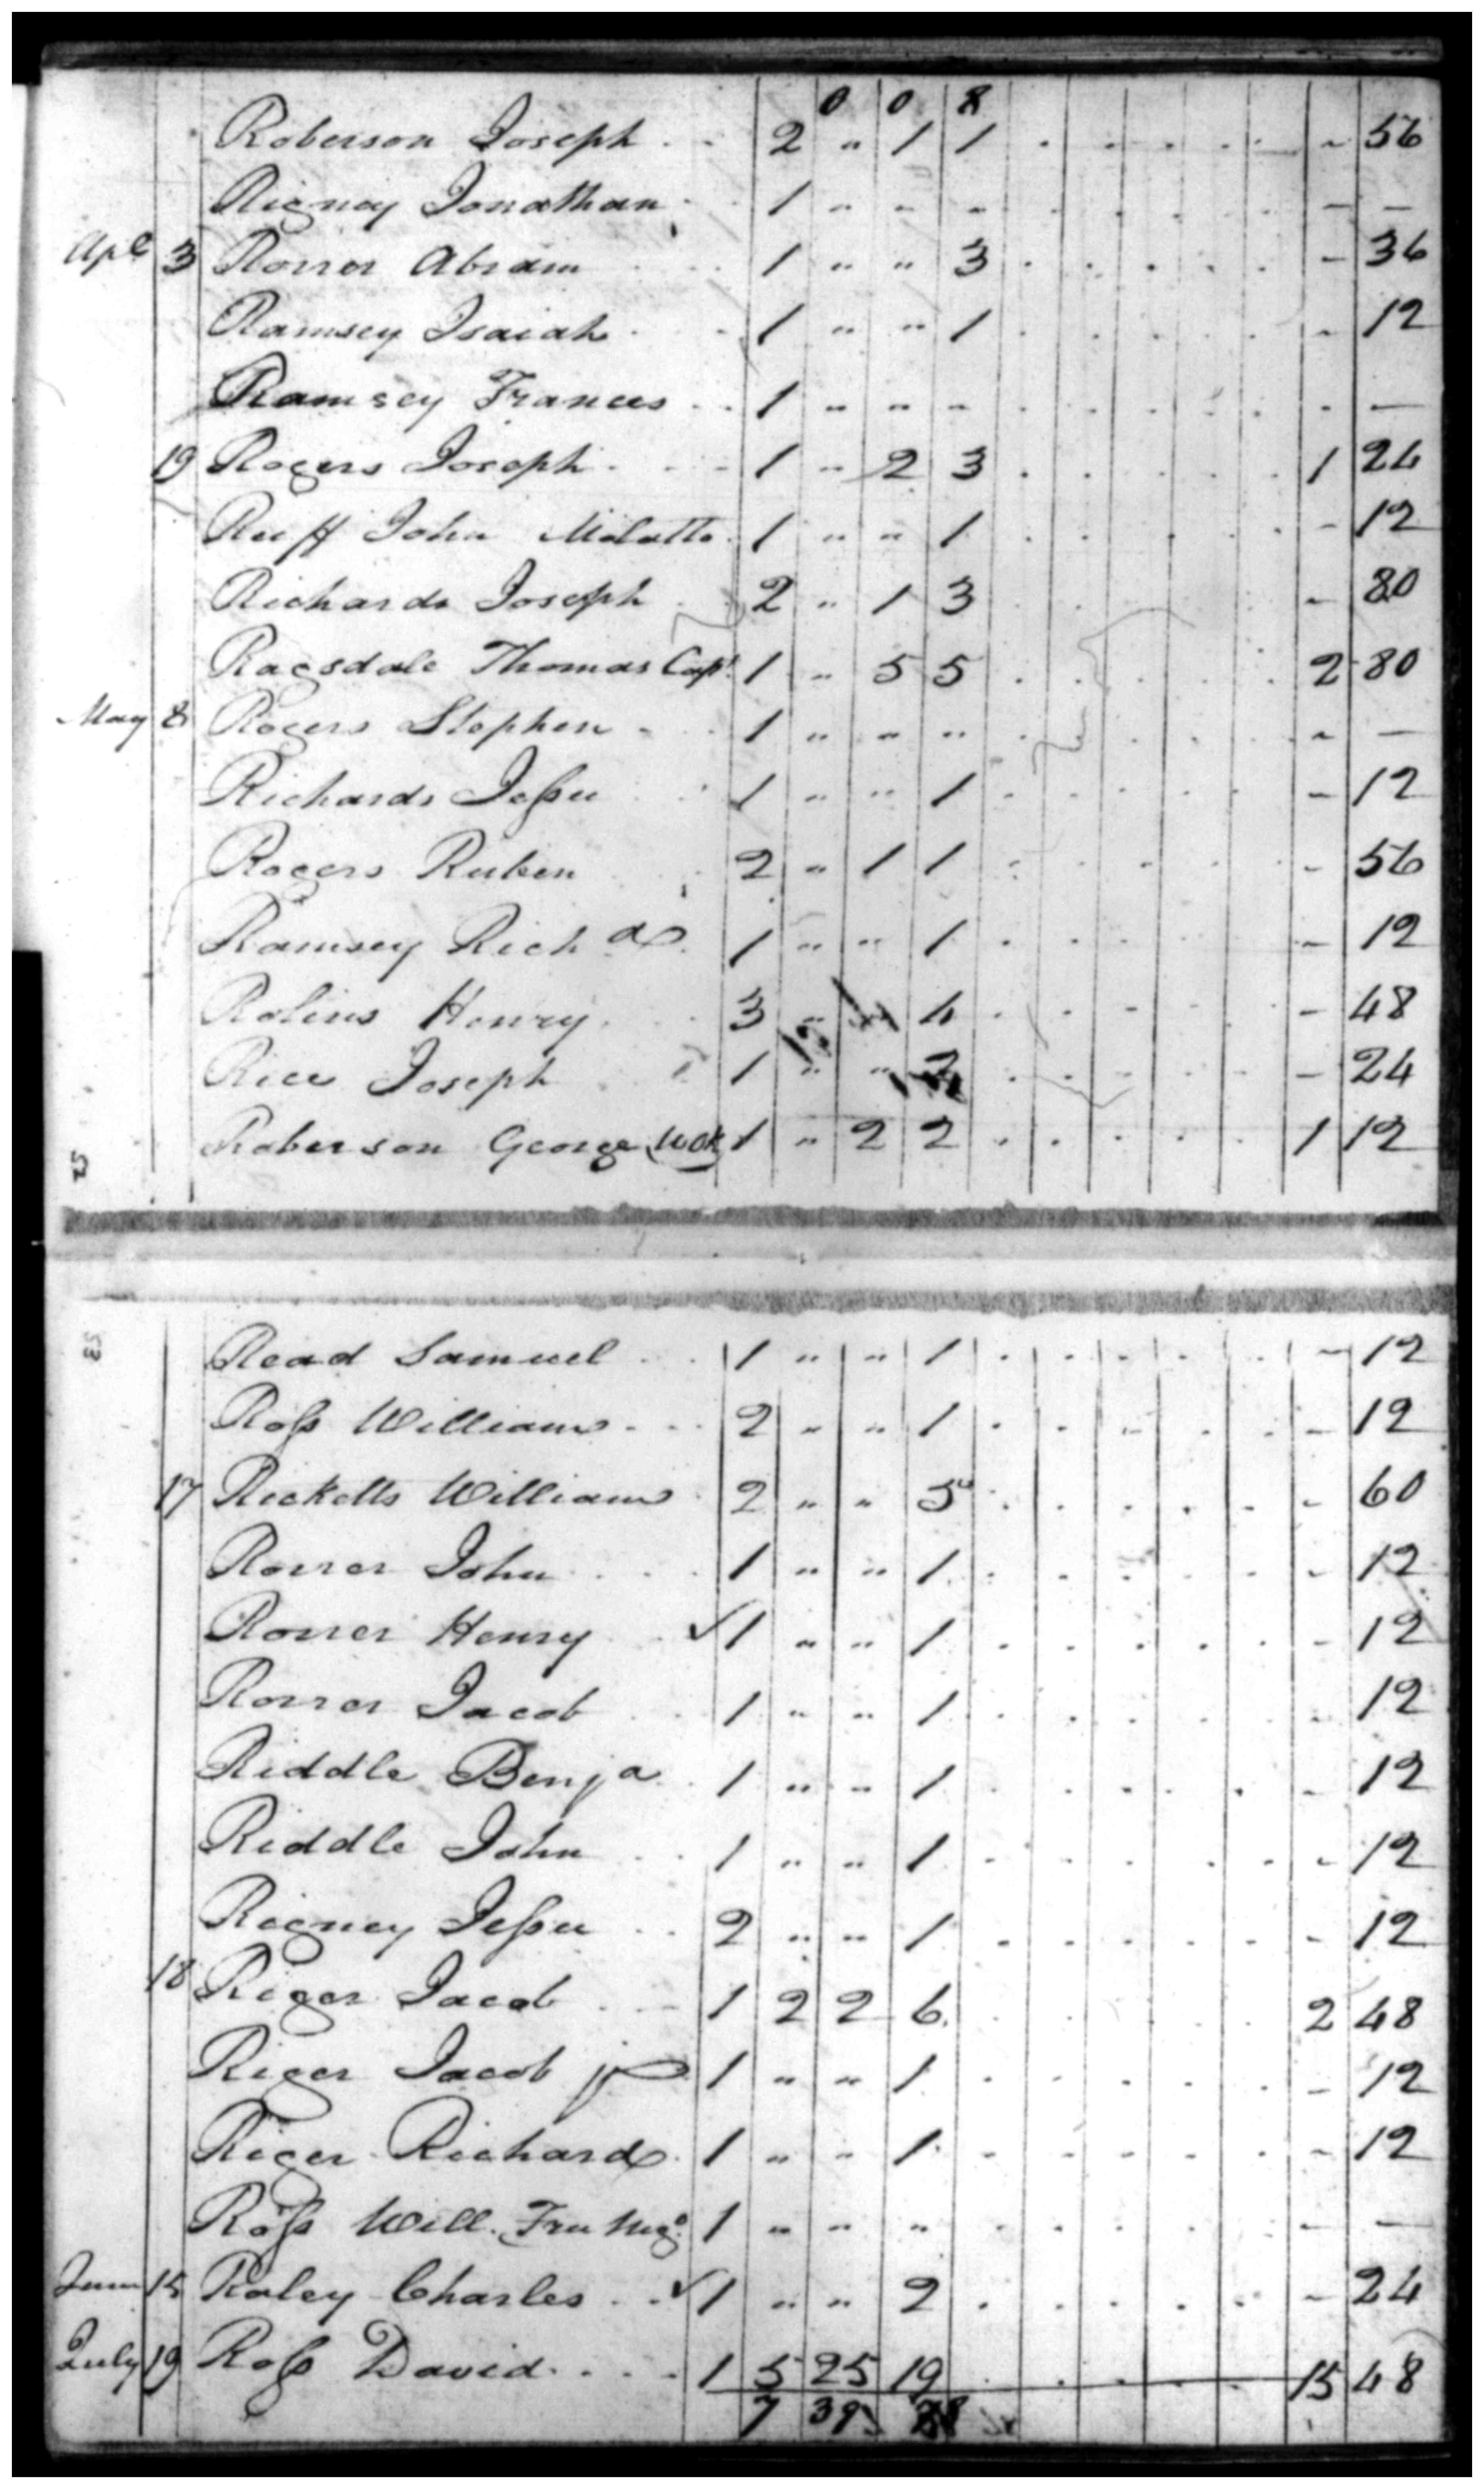 0 0 8
Roberson Joseph 2 " 1 1 - 56
Rigney Jonathan 1 " " " - -
Apl 3 Rorrer Abram 1 " " 3 - 36
Ramsey Isaiah 1 " " 1 - 12
Ramsey Frances 1 " " " - -
19 Rogers Joseph 1 " 2 3 1 24
Ruff John Molatto 1 " " 1 - 12
Richards Joseph 2 " 1 3 - 80
Ragsdale Thomas Capt 1 " 5 5 2 80
May 8 Rogers Stephen 1 " " " - -
Richards Jesse 1 " " 1 - 12
Rogers Reuben 2 " 1 1 - 56
Ramsey Richd 1 " " 1 - 12
Rolins Henry 3 " 4 - 48
Rice Joseph 1 " " 2 - 24
Roberson George 1 " 2 2 1 12
52
53
Read Samuel 1 " " 1 - 12
Ross William 2 " " 1 - 12
17 Ricketts William 2 " " 5 - 60
Rorrer John 1 " " 1 - 12
Rorrer Henry ✓ 1 " " 1 - 12
Rorrer Jacob 1 " " 1 - 12
Riddle Benja 1 " " 1 - 12
Riddle John 1 " " 1 - 12
Rigney Jesse 2 " " 1 - 12
18 Riger Jacob 1 2 2 6 2 48
Riger Jacob jr 1 " " 1 - 12
Riger Richard 1 " " 1 - 12
Ross Will. Free Nego 1 " " " - -
June 15 Raley Charles ✓ 1 " " 2 - 24
July 19 Ross David 1 5 25 19 15 48
7 39